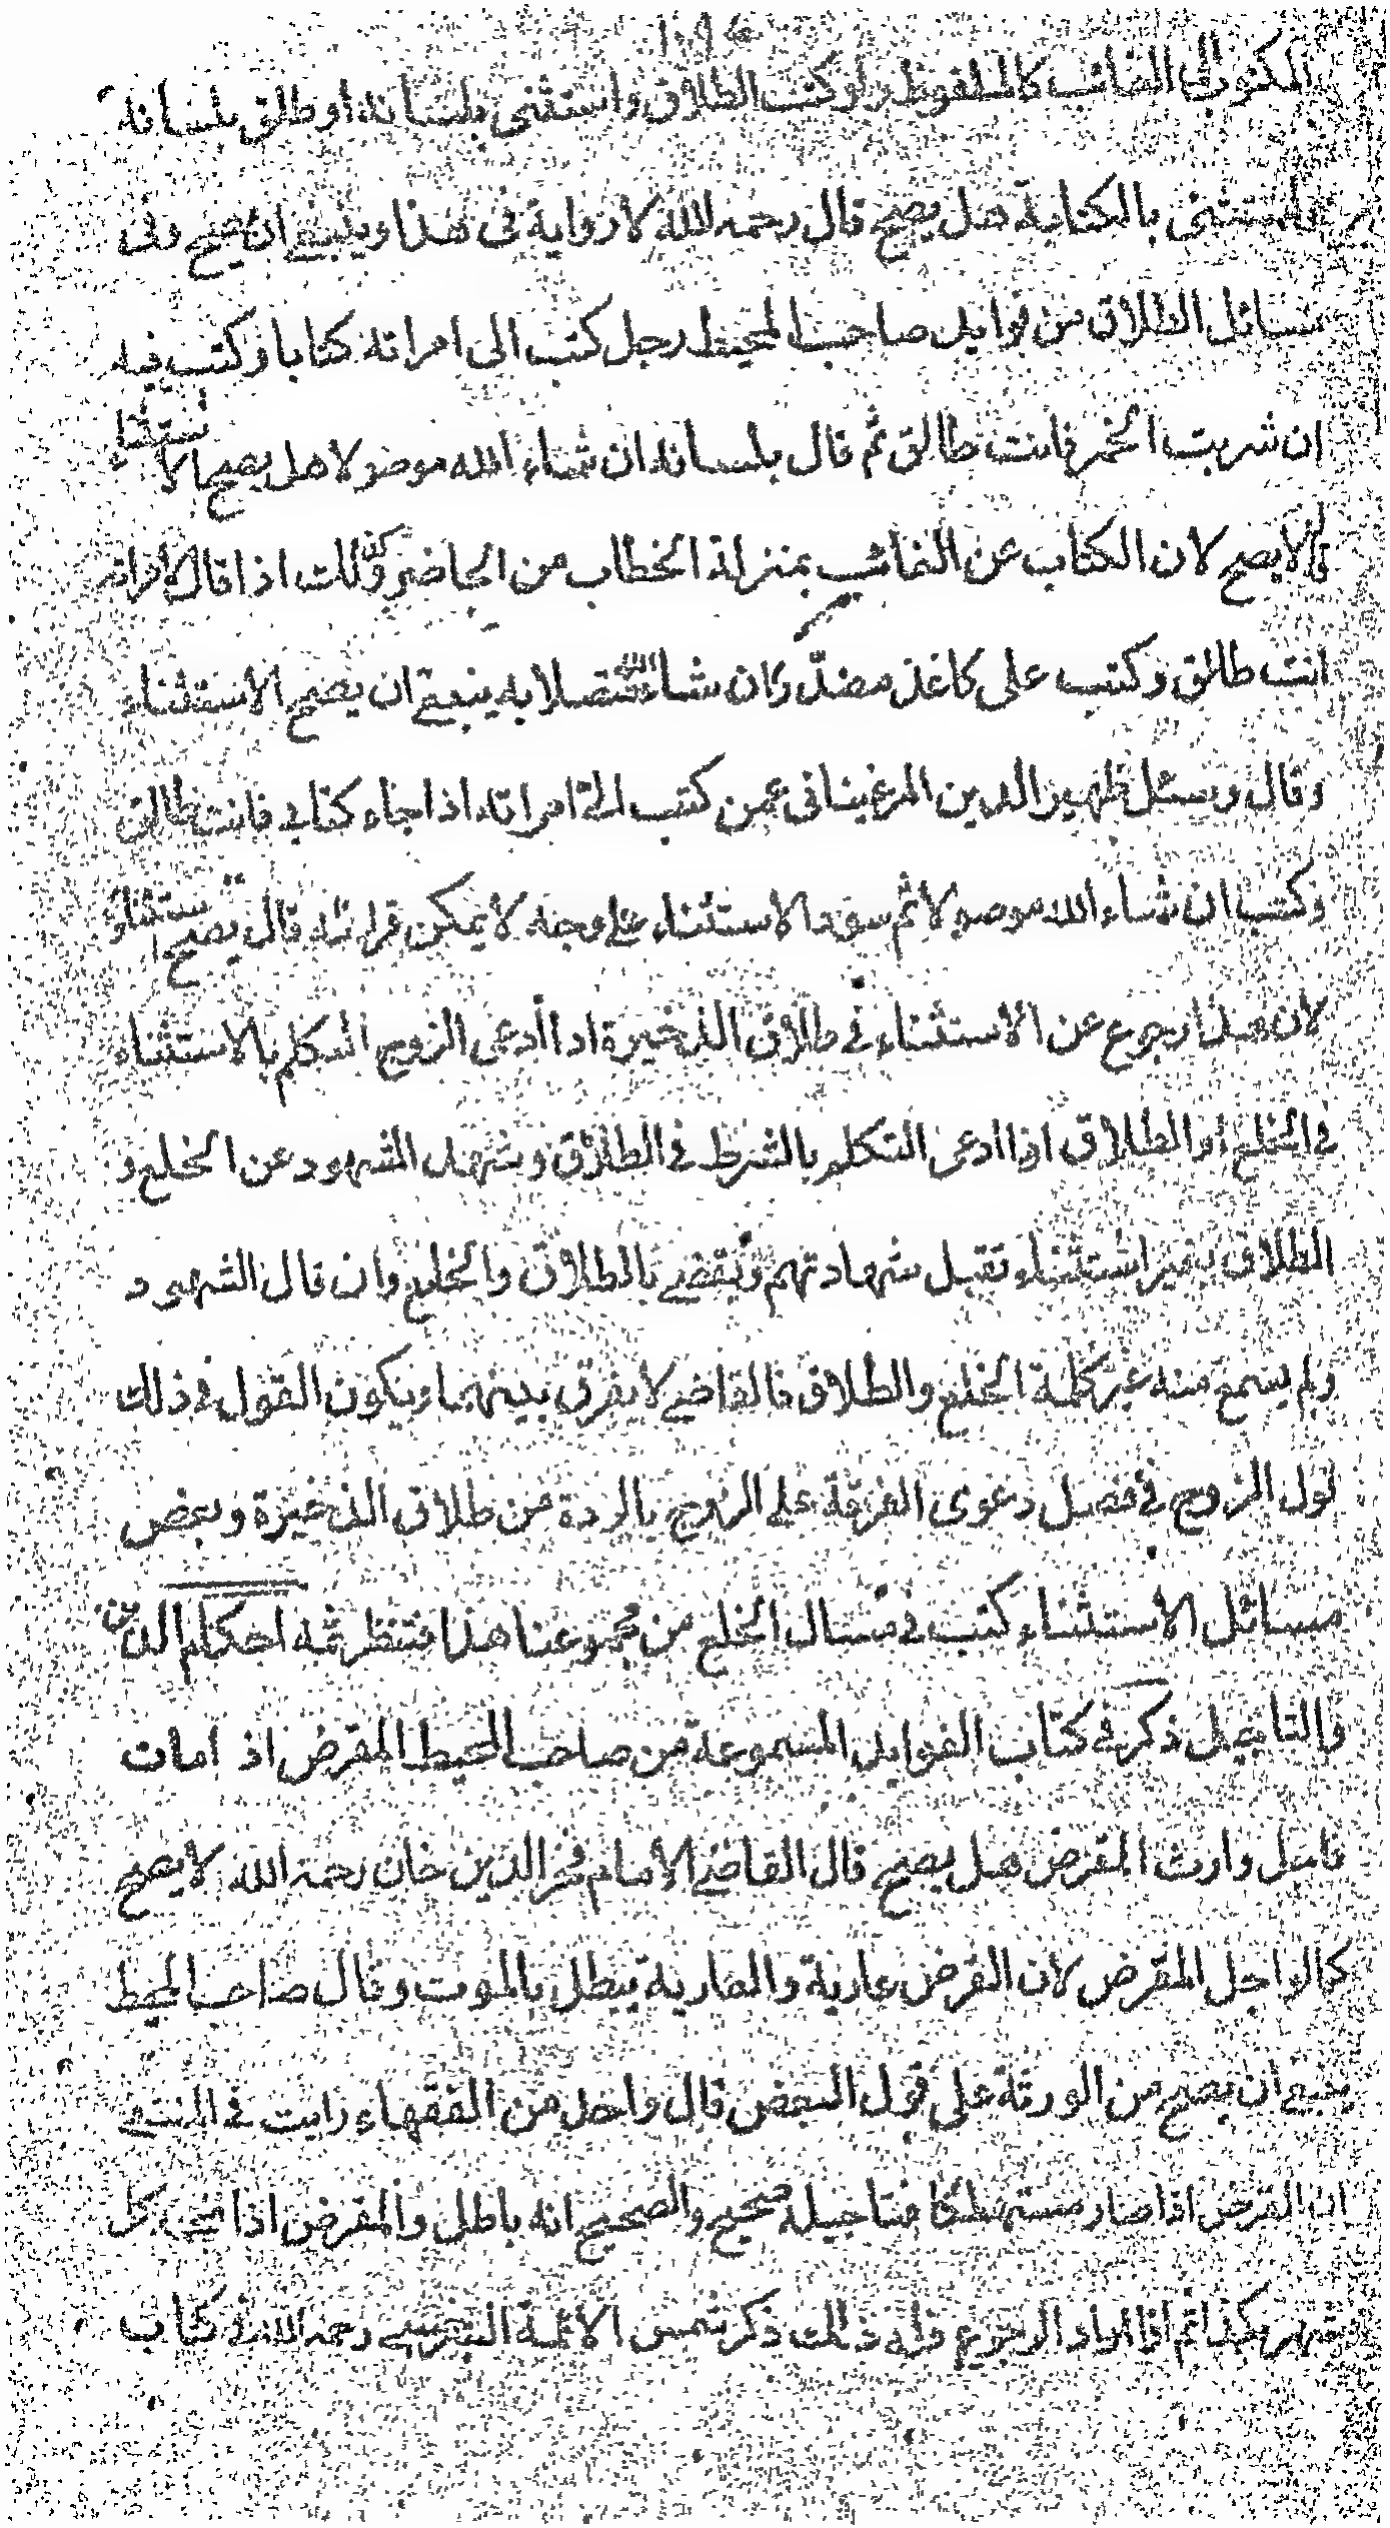 المكتوب الى الغائب كالملفوظ ولو كتب الطلاق واستثنى بلسانه او طلق بلسانه
واستثنى بالكتابة هل يصح قال رحمه الله لا رواية في هذا وينبغي ان يصح وفي
مسائل الطلاق من فوايد صاحب المحيط رجل كتب الى امراته كتابا وكتب فيه
ان شربت الخمر فانت طالق ثم قال بلسانه ان شاء الله موصولا هل يصح الاستثناء
قال لا يصح لان الكتاب عن الغائب بمنزلة الخطاب من الحاضر وكذلك اذا قال لامراته
انت طالق وكتب على كاغذ ان شاء الله متصلا به ينبغي ان يصح الاستثناء
وقال وسئل ظهير الدين المرغيناني عمن كتب الى امراته اذا جاء كتابي فانت طالق
وكتب ان شاء الله موصولا ثم سود الاستثناء على وجه لا يمكن قرائته قال يصح استثناؤه
لان هذا رجوع عن الاستثناء في طلاق الذخيرة اذا ادعى الزوج التكلم بالاستثناء
في الخلع او الطلاق اذا ادعى التكلم بالشرط في الطلاق وشهد الشهود عن الخلع و
الطلاق بغير استثناء تقبل شهادتهم ويقضي بالطلاق والخلع وان قال الشهود
ولم يسمع منه غير كلمة الخلع والطلاق فالقاضي لا يفرق بينهما ويكون القول في ذلك
قول الزوج في فصل دعوى الفرقة على الزوج بالردة من طلاق الذخيرة وبعض
مسائل الاستثناء كتبت في مسائل الخلع من مجموعنا هذا فتنظر ثمه احكام الدين
والتاجيل ذكر في كتاب الفوايد المسموعة من صاحب المحيط المقرض اذا مات
فاجل وارث المقرض هل يصح قال القاضي الامام فخر الدين خان رحمة الله لا يصح
كما لو اجل المقرض لان القرض عارية والعارية يبطل بالموت وقال صاحب المحيط
ينبغي ان يصح من الورثة على قول البعض قال واحد من الفقهاء رايت في المنتقى
ان القرض اذا صار مستهلكا فتاجيله صحيح والصحيح انه باطل والمقرض اذا كل
شهر كذا ثم اذا اراد الرجوع فله ذلك ذكر شمس الائمة السرخسي رحمه الله في كتاب